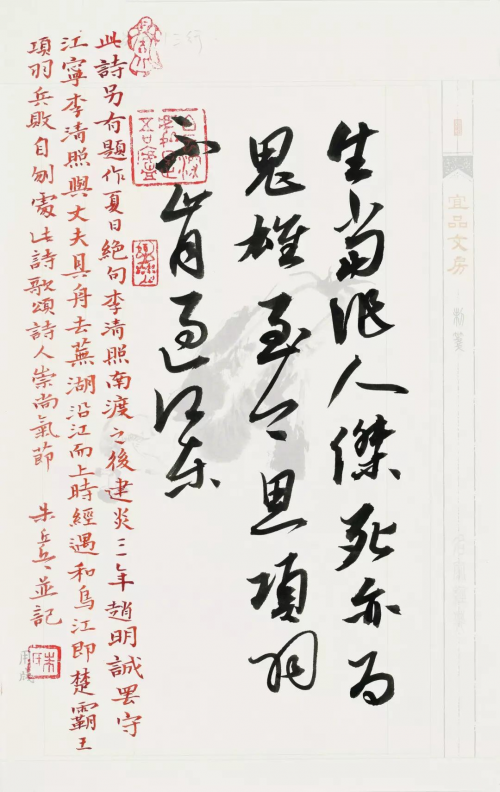 宜品文房
生當作人傑死亦為
鬼雄至今思項羽
不肯過江東
此詩另有題作夏日絕句李清照南渡之後建炎三年趙明誠罷守
江寧李清照與丈夫具舟去蕪湖沿江而上時經過和烏江即楚霸王
項羽兵敗自刎處此詩歌頌詩人崇尚氣節 並記